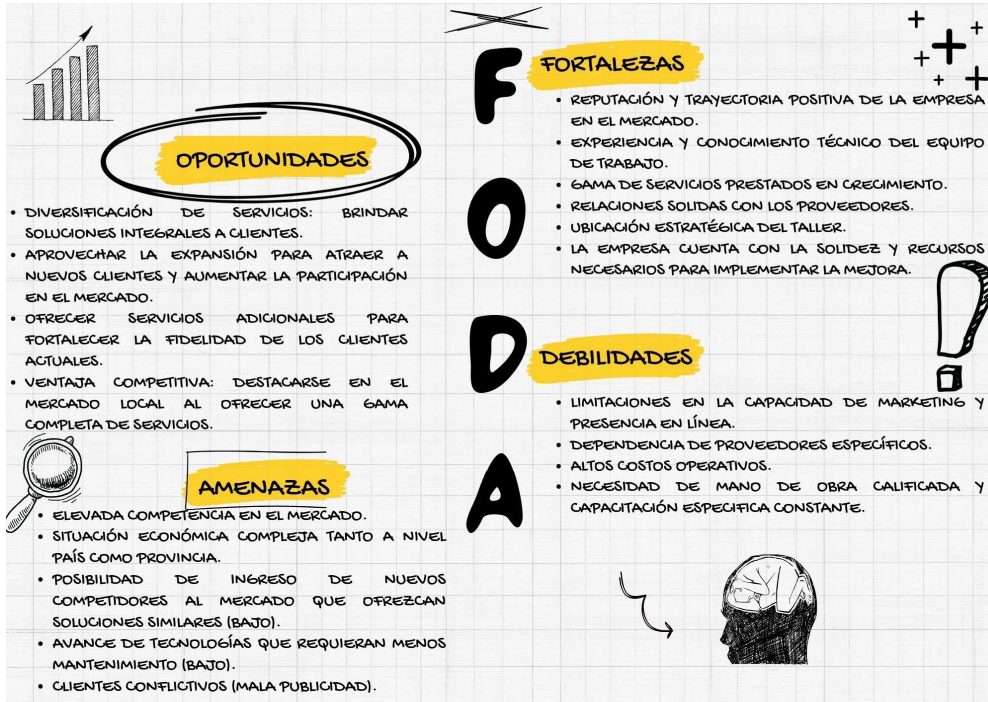 OPORTUNIDADES
• DIVERSIFICACIÓN DE SERVICIOS: BRINDAR
SOLUCIONES INTEGRALES A CLIENTES.
• APROVECHAR LA EXPANSIÓN PARA ATRAER A
NUEVOS CLIENTES Y AUMENTAR LA PARTICIPACIÓN
EN EL MERCADO.
• OFRECER SERVICIOS ADICIONALES PARA
FORTALECER LA FIDELIDAD DE LOS CLIENTES
ACTUALES.
• VENTAJA COMPETITIVA: DESTACARSE EN EL
MERCADO LOCAL AL OFRECER UNA GAMA
COMPLETA DE SERVICIOS.
AMENAZAS
• ELEVADA COMPETENCIA EN EL MERCADO.
• SITUACIÓN ECONÓMICA COMPLEJA TANTO A NIVEL
PAÍS COMO PROVINCIA.
• POSIBILIDAD DE INGRESO DE NUEVOS
COMPETIDORES AL MERCADO QUE OFREZCAN
SOLUCIONES SIMILARES (BAJO).
• AVANCE DE TECNOLOGÍAS QUE REQUIERAN MENOS
MANTENIMIENTO (BAJO).
• CLIENTES CONFLICTIVOS (MALA PUBLICIDAD).
F
O
D
A
FORTALEZAS
• REPUTACIÓN Y TRAYECTORIA POSITIVA DE LA EMPRESA
EN EL MERCADO.
• EXPERIENCIA Y CONOCIMIENTO TÉCNICO DEL EQUIPO
DE TRABAJO.
• GAMA DE SERVICIOS PRESTADOS EN CRECIMIENTO.
• RELACIONES SOLIDAS CON LOS PROVEEDORES.
• UBICACIÓN ESTRATÉGICA DEL TALLER.
• LA EMPRESA CUENTA CON LA SOLIDEZ Y RECURSOS
NECESARIOS PARA IMPLEMENTAR LA MEJORA.
DEBILIDADES
• LIMITACIONES EN LA CAPACIDAD DE MARKETING Y
PRESENCIA EN LÍNEA.
• DEPENDENCIA DE PROVEEDORES ESPECÍFICOS.
• ALTOS COSTOS OPERATIVOS.
• NECESIDAD DE MANO DE OBRA CALIFICADA Y
CAPACITACIÓN ESPECIFICA CONSTANTE.